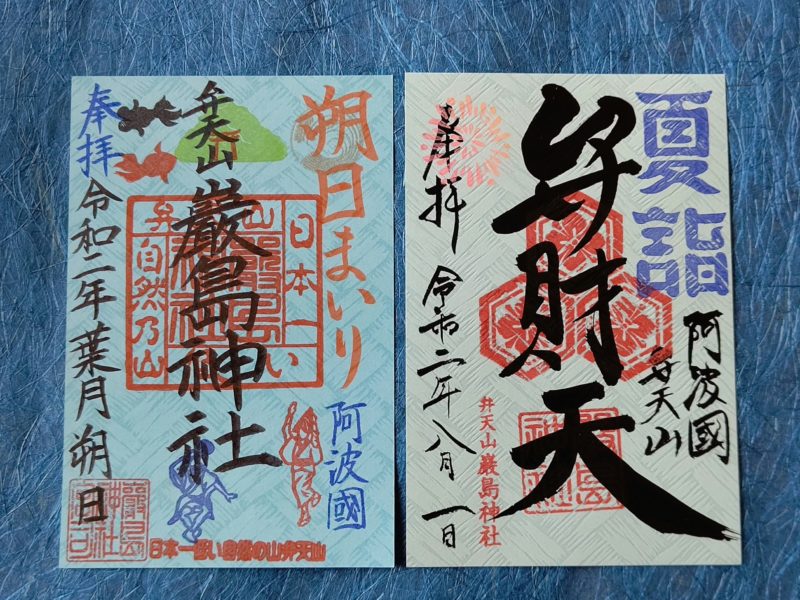 朔日まいり
阿波國
弁天山
厳島神社
奉拝
令和二年葉月朔日
日本一
自然乃山
夏詣
阿波國
弁天山
弁財天
奉拝
令和二年八月一日
弁天山厳島神社